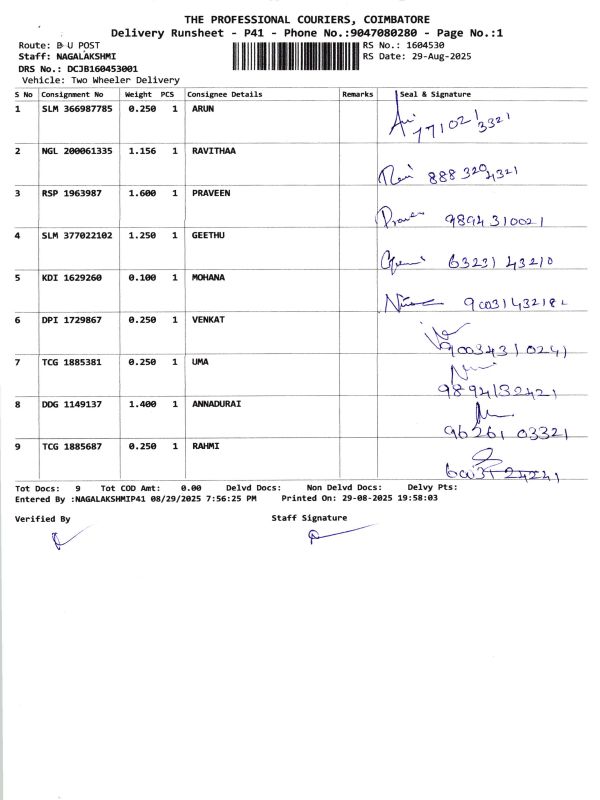 THE PROFESSIONAL COURIERS, COIMBATORE
Delivery Runsheet - P41 - Phone No.:9047080280 - Page No.:1
Route: B U POST RS No.: 1604530
Staff: NAGALAKSHMI RS Date: 29-Aug-2025
DRS No.: DCJB160453001
Vehicle: Two Wheeler Delivery
S No Consignment No Weight PCS Consignee Details Remarks Seal & Signature
1 SLM 366987785 0.250 1 ARUN
771021 3321
2 NGL 200061335 1.156 1 RAVITHAA
888 320 4321
3 RSP 1963987 1.600 1 PRAVEEN
98943 10021
4 SLM 377022102 1.250 1 GEETHU
63231 43210
5 KDI 1629260 0.100 1 MOHANA
6 DPI 1729867 0.250 1 VENKAT
9003431 0241
7 TCG 1885381 0.250 1 UMA
9894132421
8 DDG 1149137 1.400 1 ANNADURAI
96261 03321
9 TCG 1885687 0.250 1 RAHMI
Tot Docs: 9 Tot COD Amt: 0.00 Delvd Docs: Non Delvd Docs: Delvy Pts:
Entered By :NAGALAKSHMIP41 08/29/2025 7:56:25 PM Printed On: 29-08-2025 19:58:03
Verified By Staff Signature